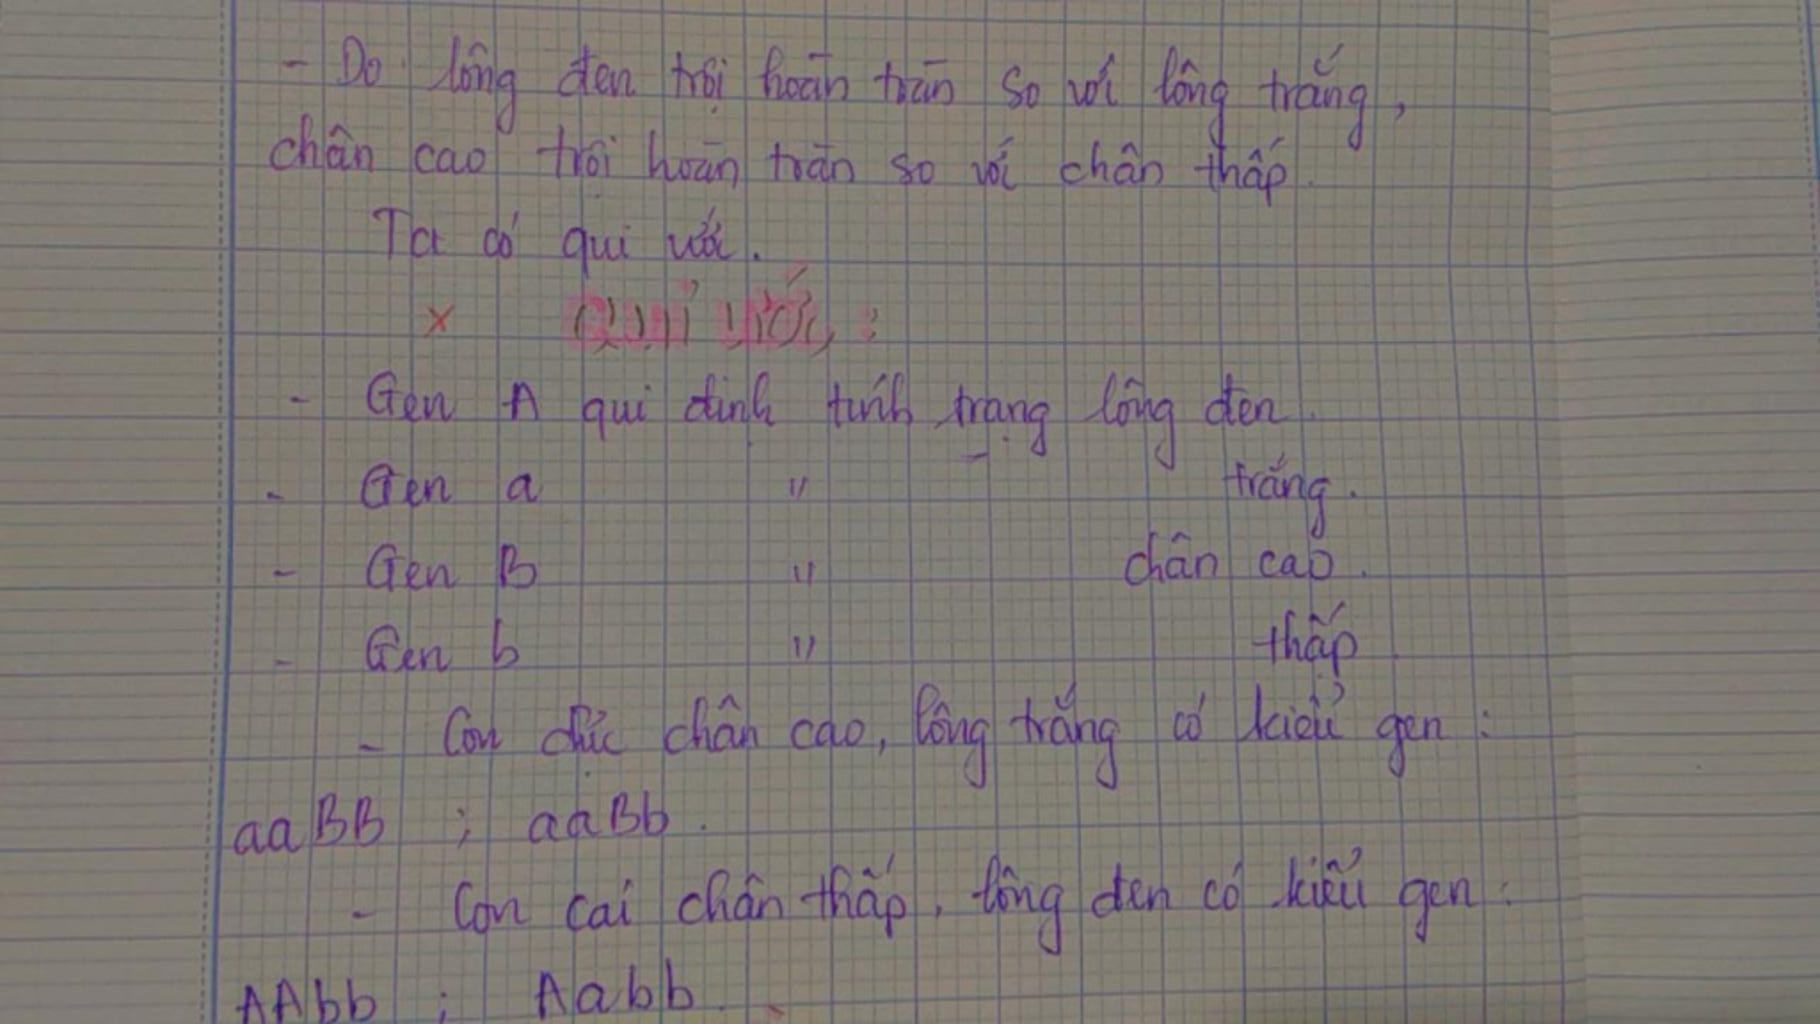 - Do lông đen trội hoàn toàn so với lông trắng,
chân cao trội hoàn toàn so với chân thấp.
Ta có qui ước.
x QUI ƯỚC :
- Gen A qui định tính trạng lông đen.
- Gen a " trắng.
- Gen B " chân cao.
- Gen b " thấp.
- Con đực chân cao, lông trắng có kiểu gen :
aaBB ; aaBb.
- Con cái chân thấp, lông đen có kiểu gen :
AAbb ; Aabb.